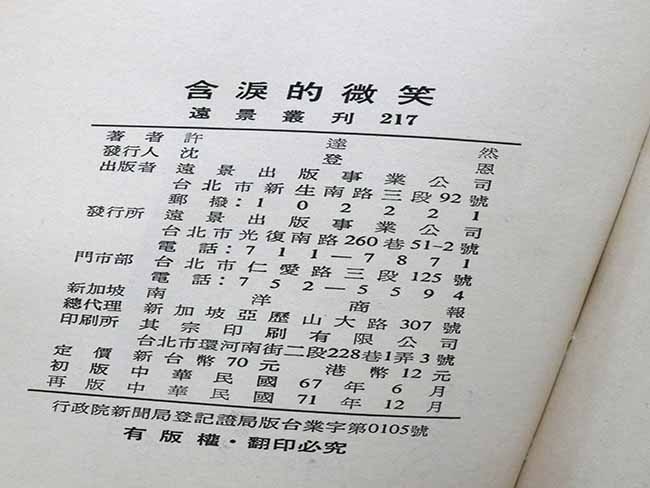 含淚的微笑
遠景叢刊 217
著者 許達然
發行人 沈登恩
出版者 遠景出版事業公司
台北市新生南路三段92號
郵撥:102221
發行所 遠景出版事業公司
台北市光復南路260巷51-2號
電話:711-7871
門市部 台北市仁愛路三段125號
電話:752-5594
新加坡 南洋商報
總代理 新加坡亞歷山大路307號
印刷所 其宗印刷有限公司
台北市環河南街二段228巷1弄3號
定價 新台幣70元 港幣12元
初版 中華民國67年6月
再版 中華民國71年12月
行政院新聞局登記證局版台業字第0105號
有版權·翻印必究